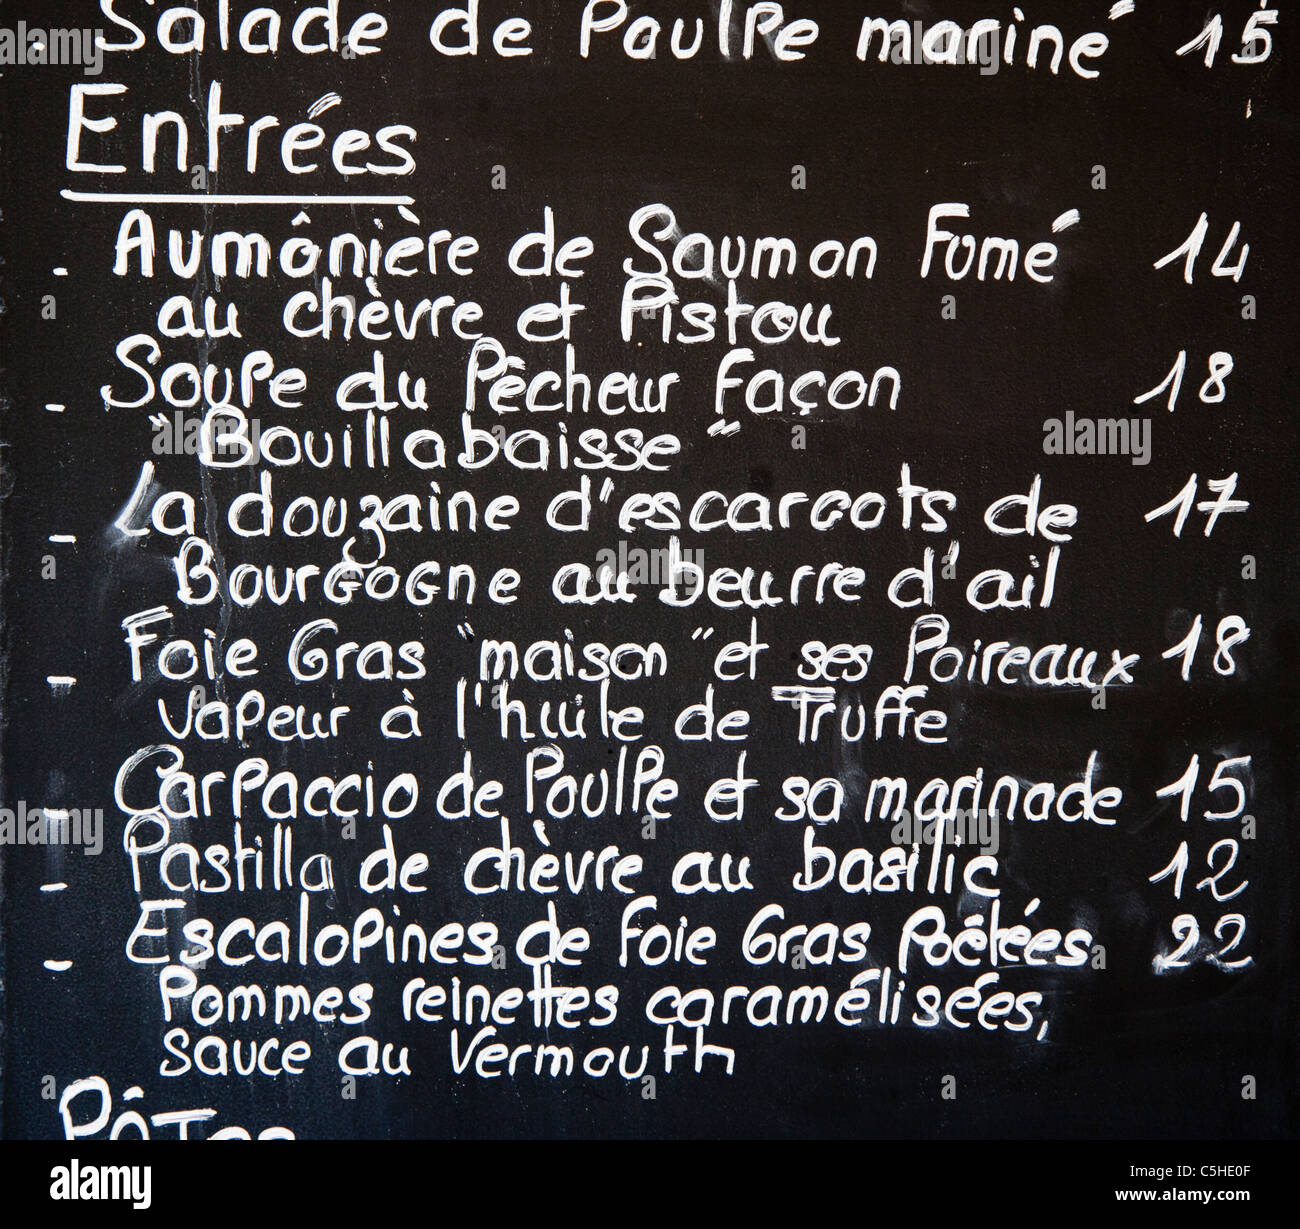 . Salade de Poulpe mariné 15
Entrées
- Aumônière de Saumon Fumé 14
au chèvre et Pistou
- Soupe du Pêcheur Façon 18
"Bouillabaisse"
- La douzaine d'escargots de 17
Bourgogne au beurre d'ail
- Foie Gras "maison" et ses Poireaux 18
vapeur à l'huile de Truffe
- Carpaccio de Poulpe et sa marinade 15
- Pastilla de chèvre au basilic 12
- Escalopines de Foie Gras Poêtées 22
Pommes reinettes caramélisées,
sauce au Vermouth
Pâtes
alamy
Image ID: C5HE0F
www.alamy.com